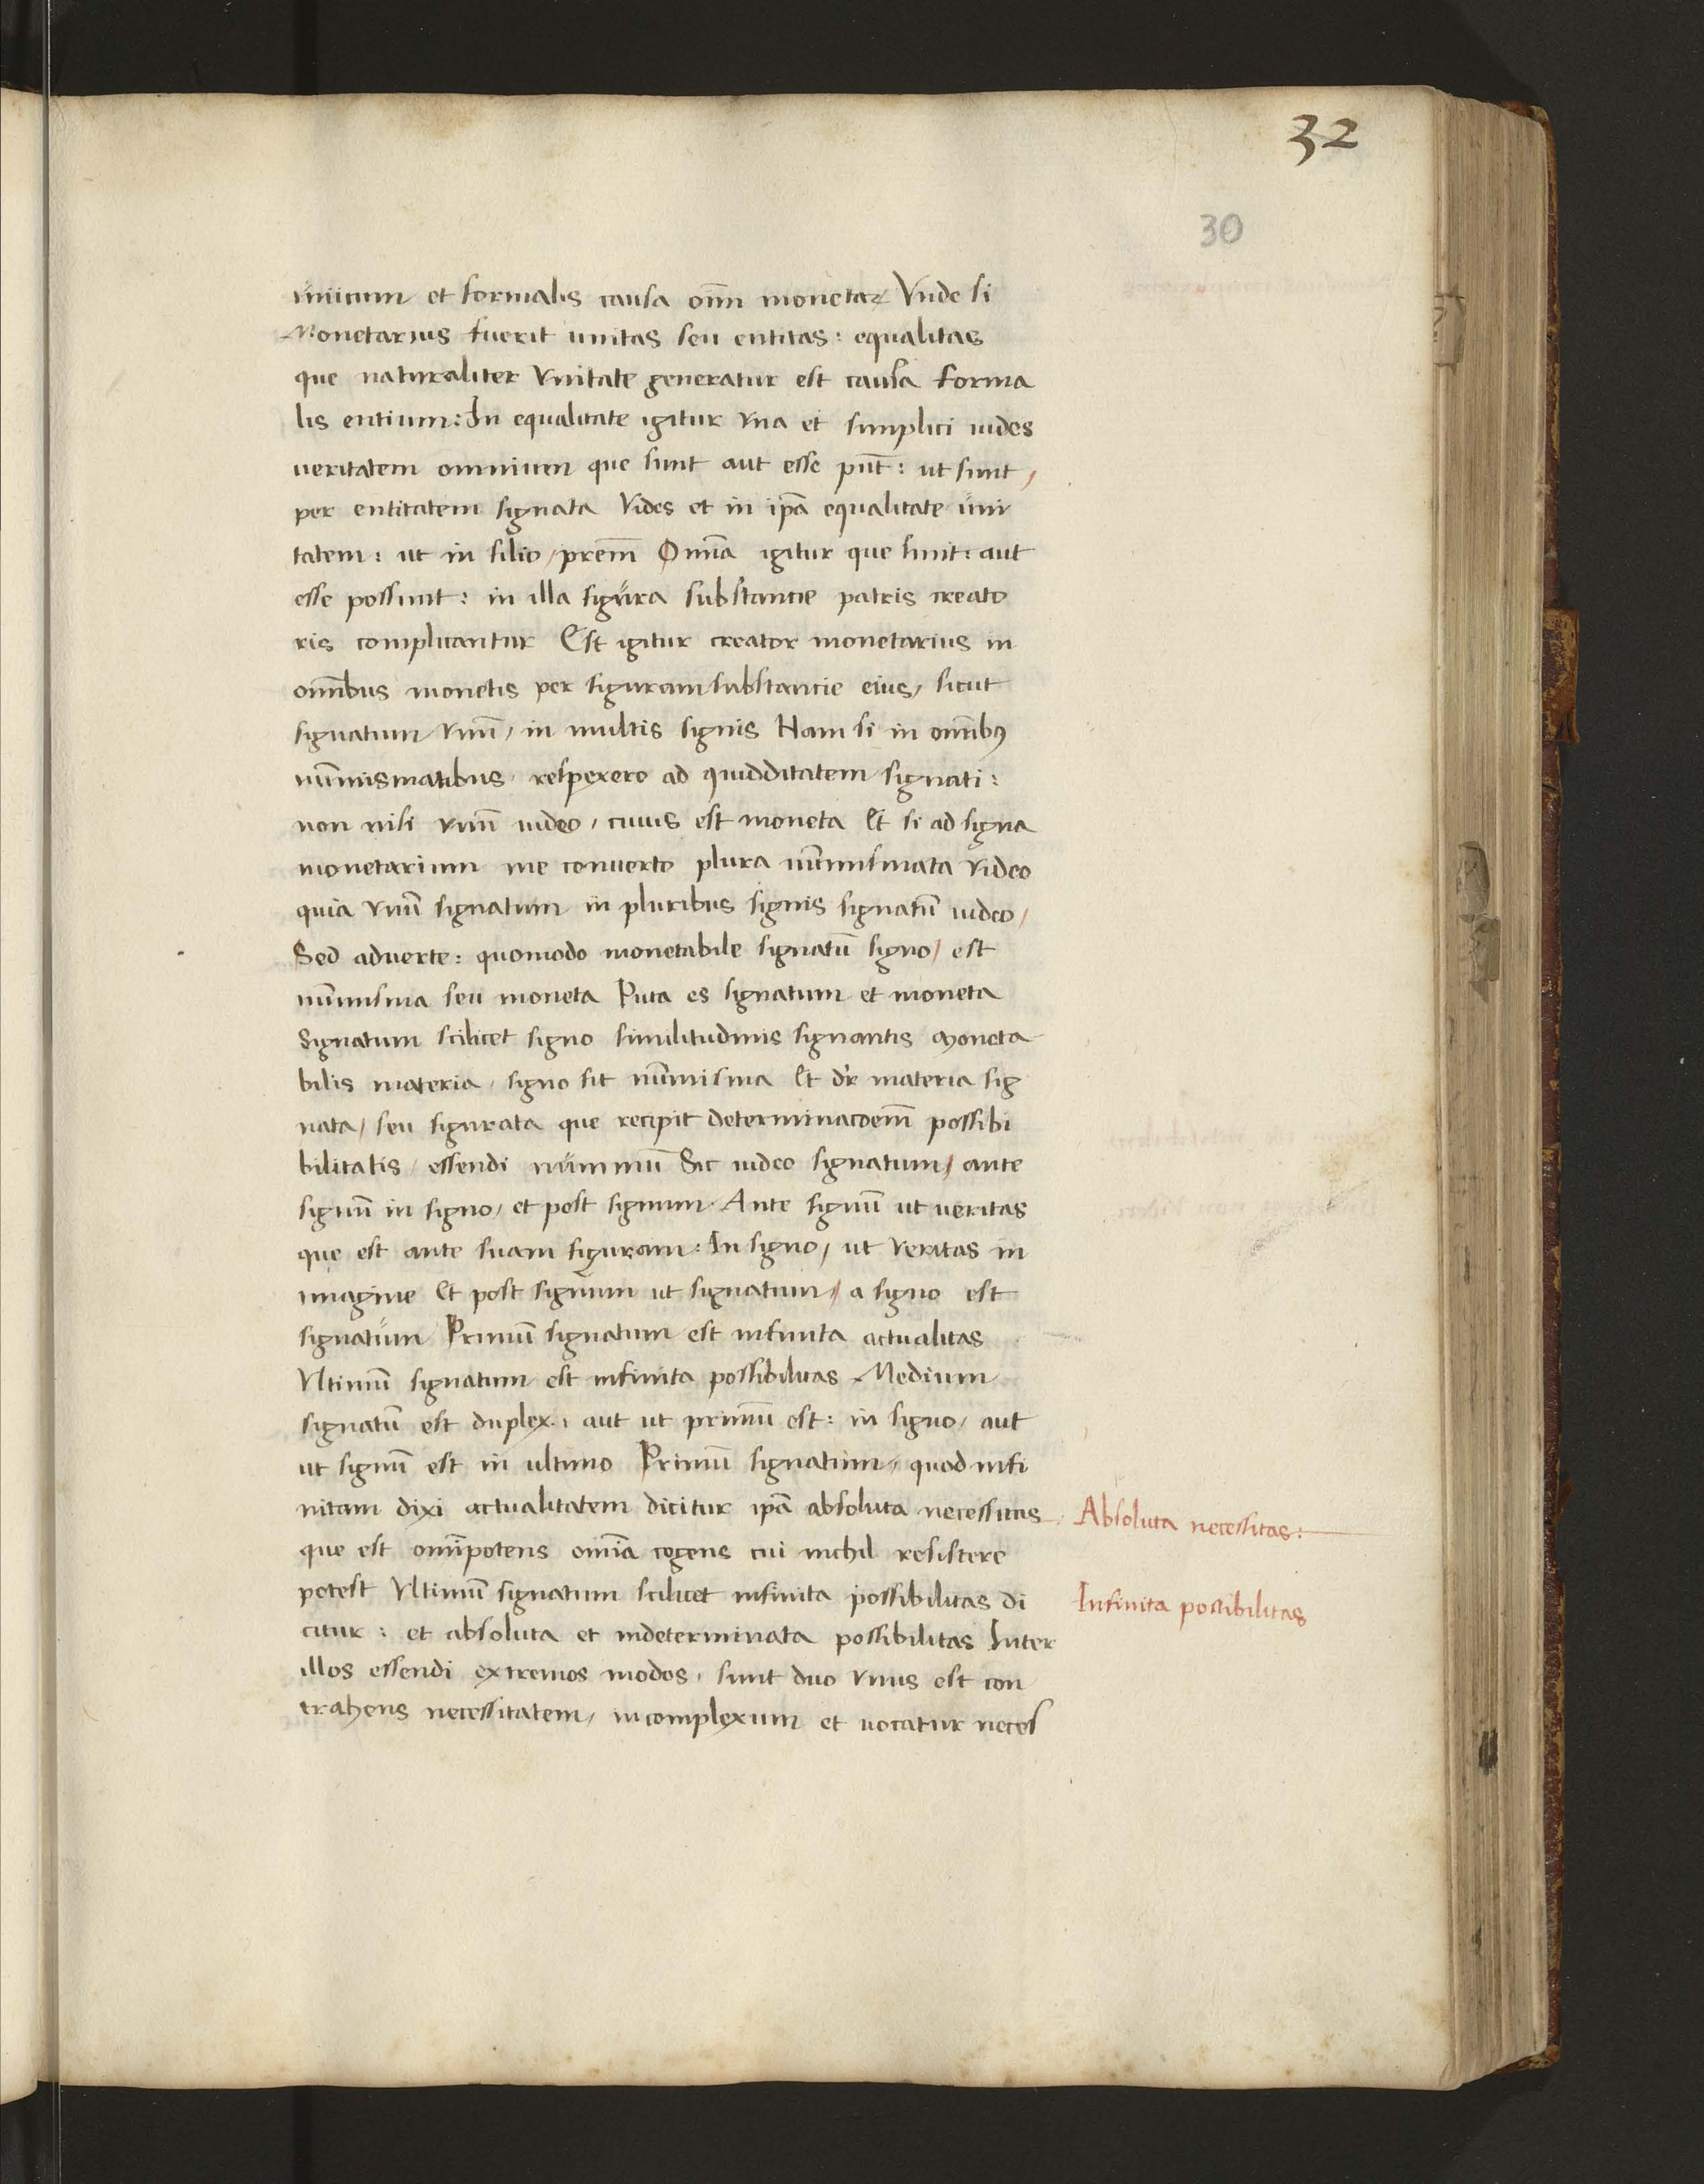 32
30
unicum et formalis causa om̄i monetaꝝ Vnde si
Monetarius fuerit unitas seu entitas: equalitas
que naturaliter Vnitate generatur est causa forma
lis entium: In equalitate igitur vna et simplici uides
ueritatem omnium que sunt aut esse pn̄t: ut sunt/
per entitatem signata Vides et in ip̄a equalitate uni
tatem: ut in filio/ prēm Om̄ia igitur que sunt: aut
esse possunt: in illa figura substantie patris creato
ris complicantur Est igitur creator monetarius in
om̄ibus monetis per figuram substantie eius/ sicut
signatum vnū/ in multis signis Nam si in om̄ibꝰ
nūmismatibus respexero ad quidditatem signati:
non nisi vnū uideo/ cuius est moneta Et si ad signa
monetarium me conuerto plura nūmismata video
quia vnū signatum in pluribus signis signatū uideo/
Sed aduerte: quomodo monetabile signatū signo/ est
nūmisma seu moneta Puta es signatum et moneta
Signatum scilicet signo similitudinis signantis Moneta
bilis materia/ signo fit nūmisma Et dr̄ materia sig
nata/ seu figurata que recipit determinacōem̄ possibi
bilitatis/ essendi nummū Sic uideo signatum/ ante
signū in signo/ et post signum Ante signū ut ueritas
que est ante suam figuram: In signo/ ut veritas in
imagine Et post signum ut signatum/ a signo est
signatum Primū signatum est infinita actualitas
Vltimū signatum est infinita possibilitas Medium
signatū est duplex: aut ut primū est: in signo/ aut
ut signū est in ultimo Primū signatum/ quod infi
nitam dixi actualitatem dicitur ip̄a absoluta necessitas
que est om̄ipotens om̄ia cogens cui nichil resistere
potest Vltimū signatum scilicet infinita possibilitas di
citur: et absoluta et indeterminata possibilitas Inter
illos essendi extremos modos/ sunt duo vnus est con
trahens necessitatem/ incomplexum et uocatur neces
Absoluta necessitas:
Infinita possibilitas